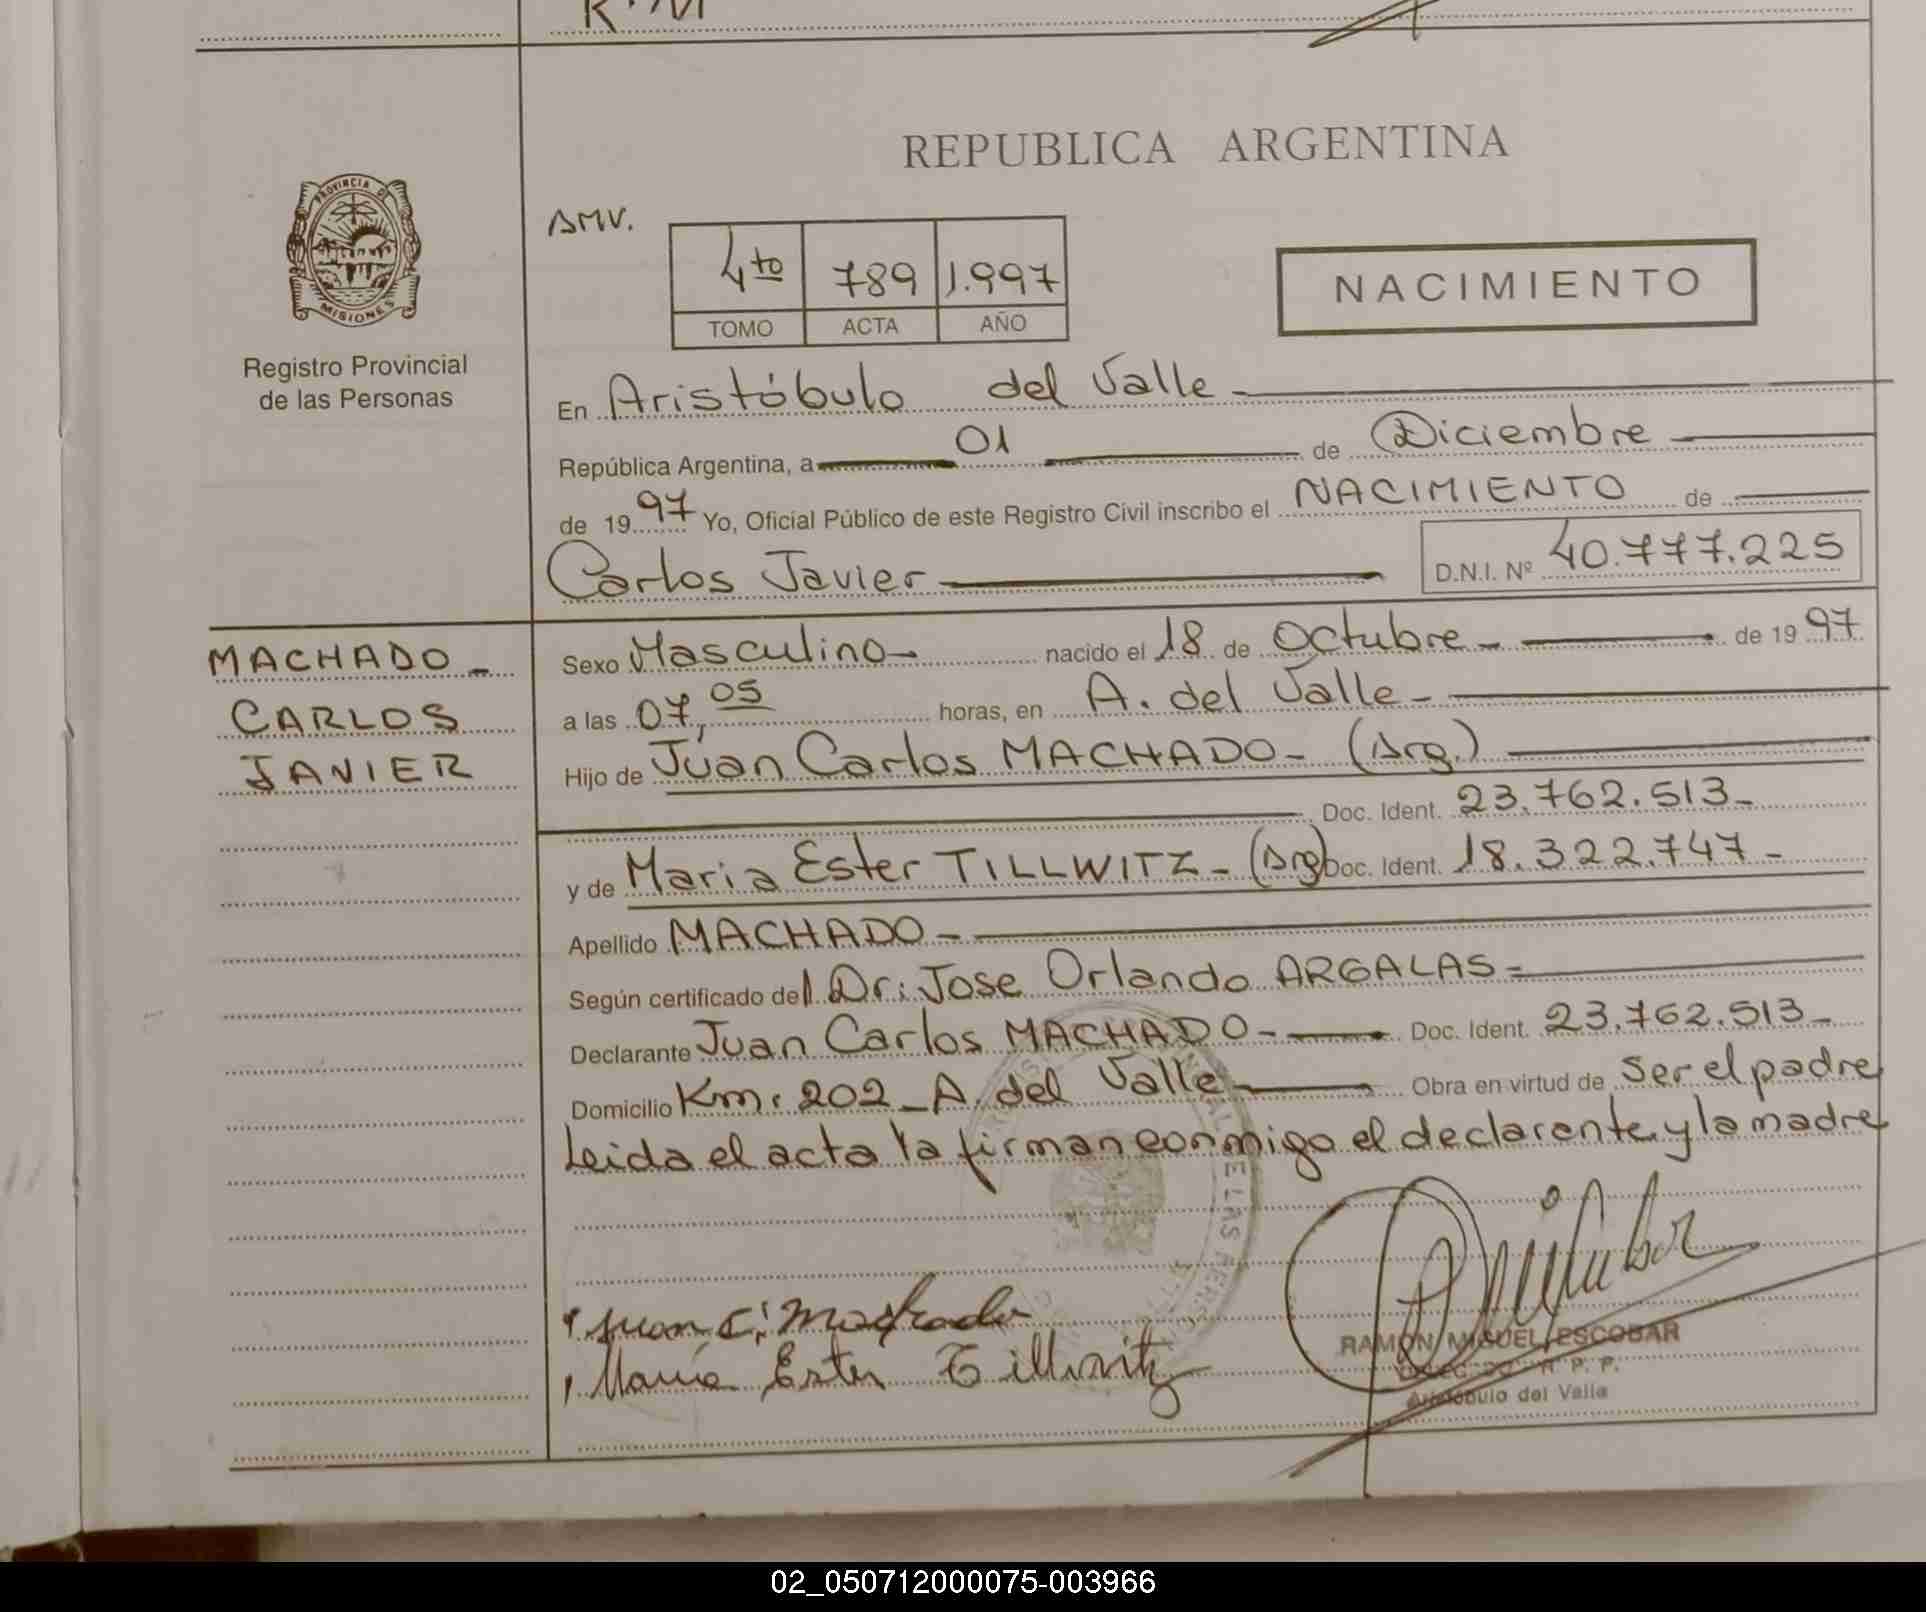 REPUBLICA ARGENTINA
PROVINCIA DE
MISIONES
Registro Provincial
de las Personas
AMV.
4to 789 1.997
TOMO ACTA AÑO
NACIMIENTO
En Aristóbulo del Valle -
República Argentina, a 01 de Diciembre
de 1997 Yo, Oficial Público de este Registro Civil inscribo el NACIMIENTO de
Carlos Javier D.N.I. Nº 40.777.225
MACHADO -
CARLOS
JAVIER
Sexo Masculino - nacido el 18 de Octubre - de 1997
a las 07,05 horas, en A. del Valle -
Hijo de Juan Carlos MACHADO - (Arg.)
Doc. Ident. 23.762.513 -
y de Maria Ester TILLWITZ - (Arg) Doc. Ident. 18.322.747 -
Apellido MACHADO -
Según certificado del Dr: Jose Orlando ARGALAS =
Declarante Juan Carlos MACHADO - Doc. Ident. 23.762.513 -
Domicilio Km. 202 - A. del Valle Obra en virtud de ser el padre
Leida el acta la firman conmigo el declarente y la madre
Juan C. Machado
María Ester Tillwitz
RAMON MIGUEL ESCOBAR
R. P. P.
Aristóbulo del Valle
02_050712000075-003966